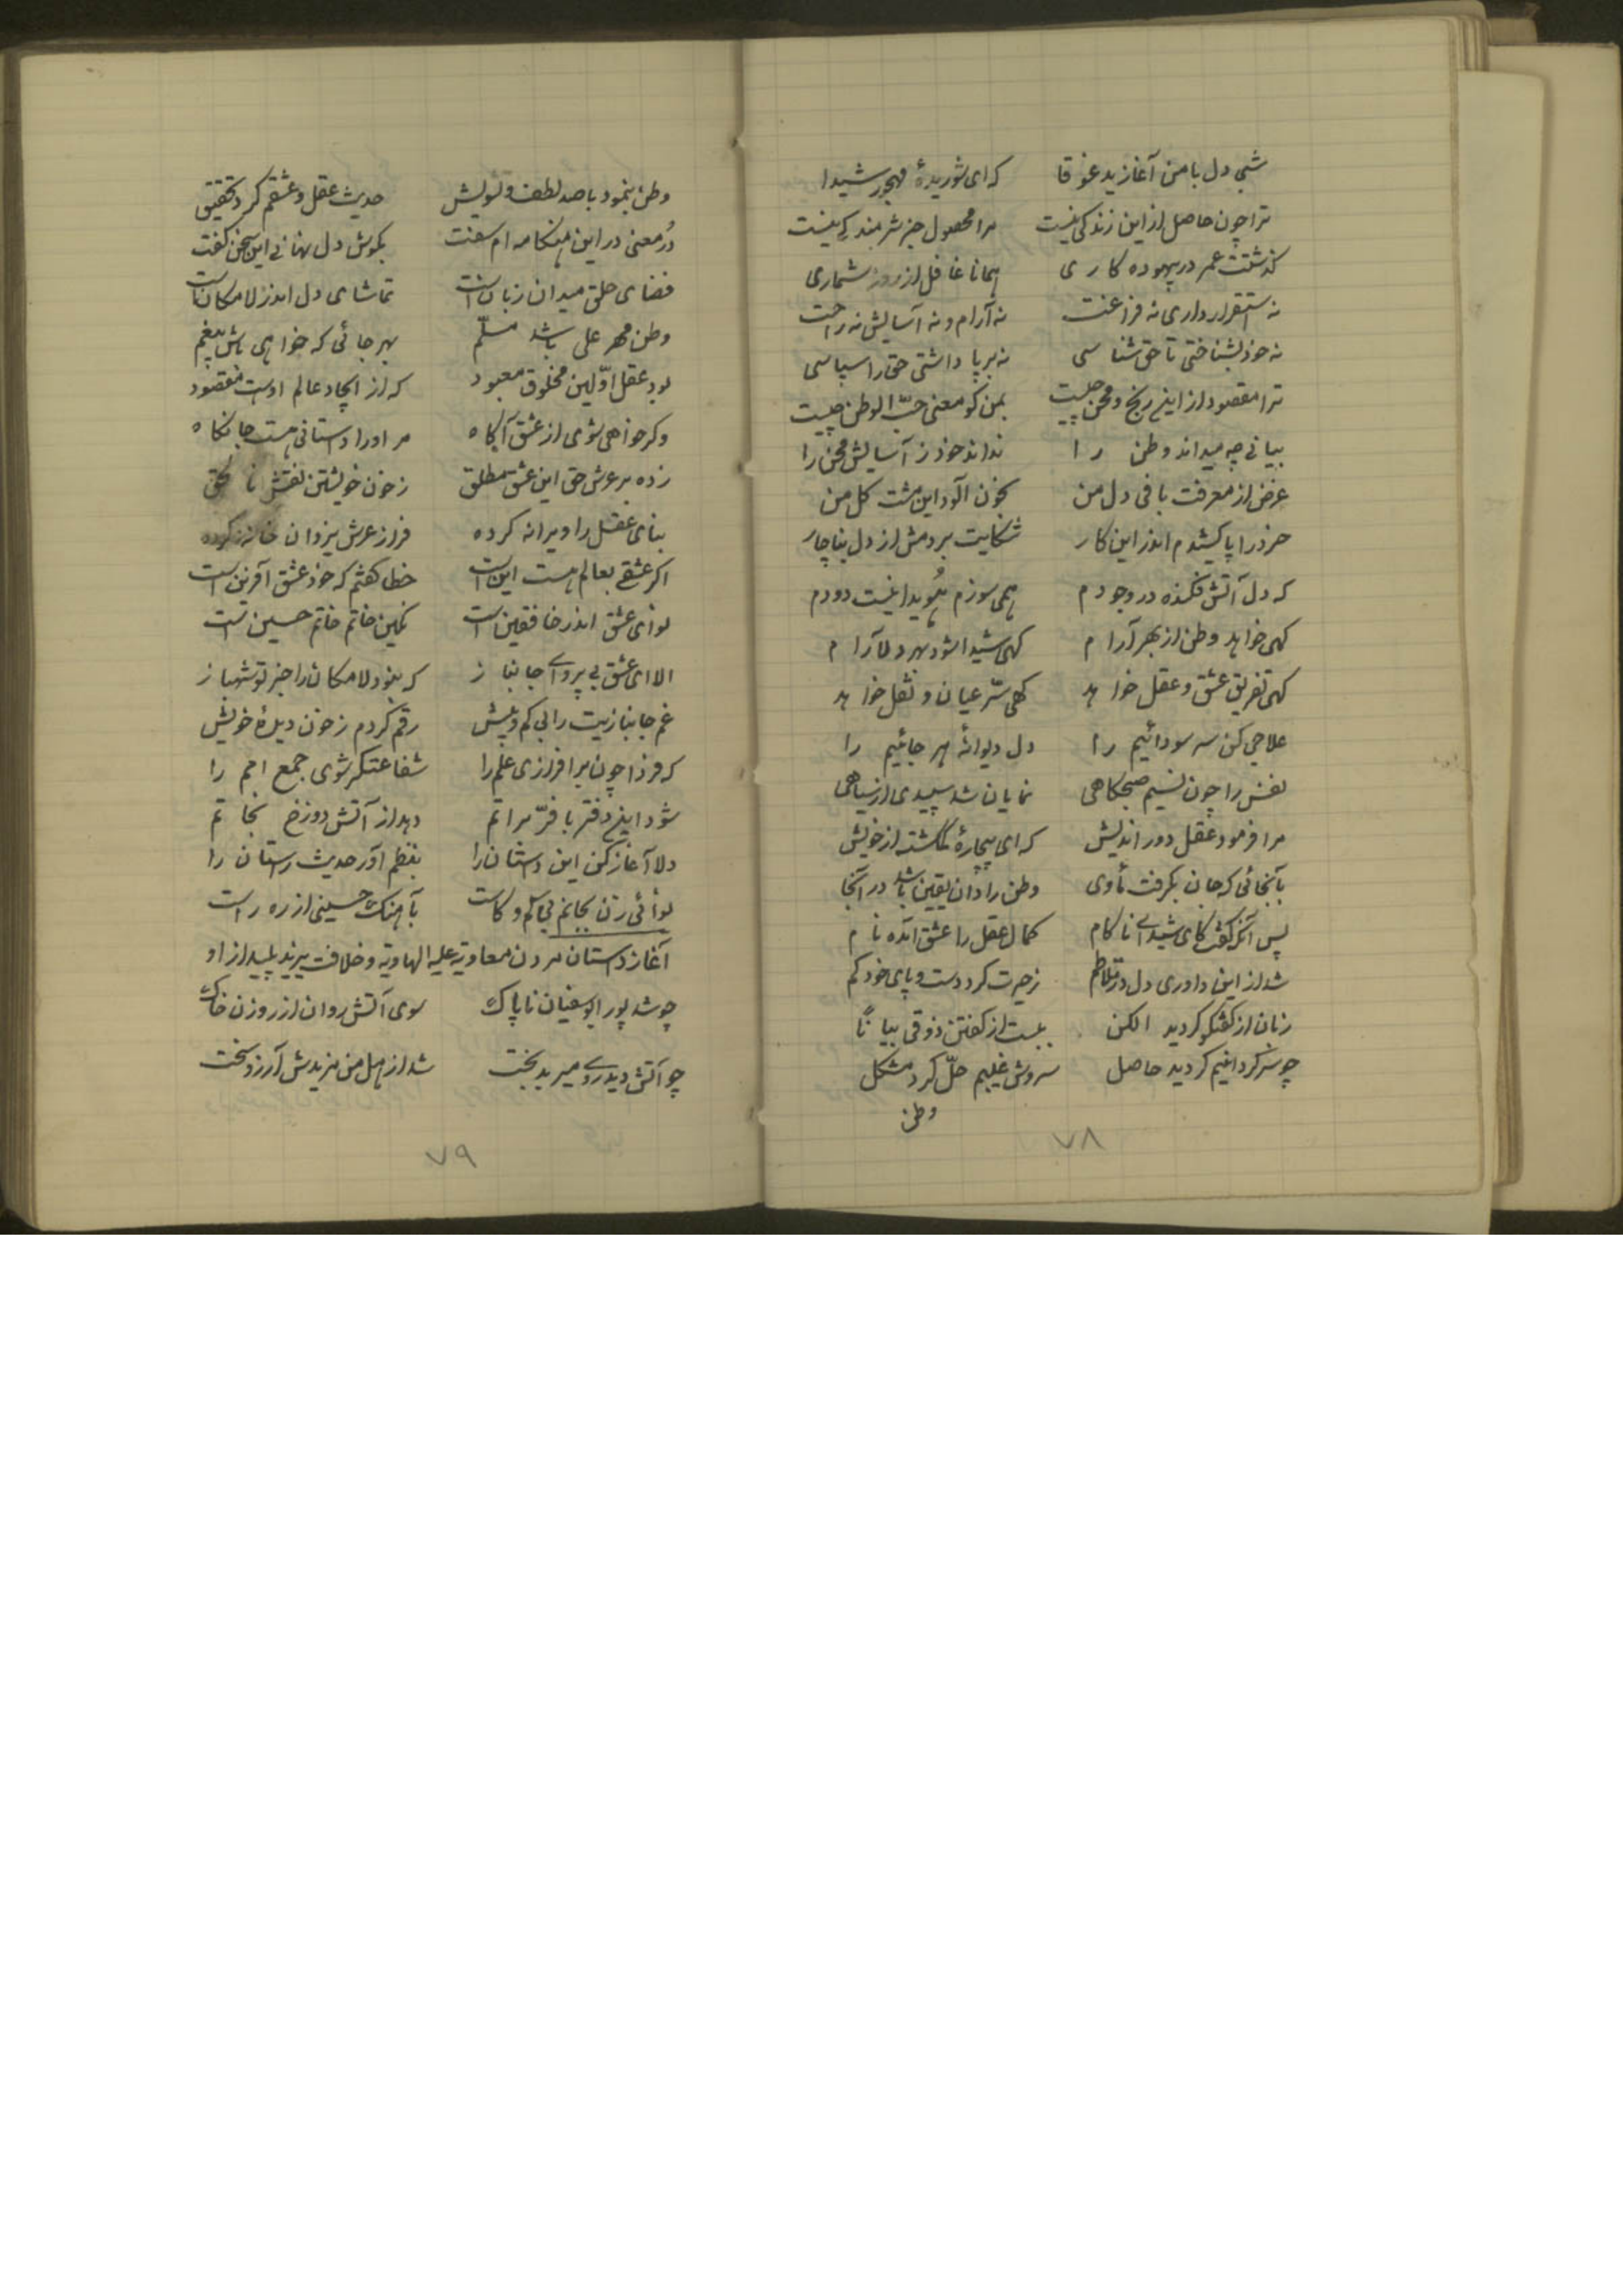 شبی دل با من آغازید غوغا که ای شوریدهٔ مهجور شیدا
ترا چون حاصل از این زندگی نیست مرا محصول جز شرمندگی نیست
گذشتت عمر در بیهوده کاری همانا غافل از روز شماری
نه استقرار داری نه فراغت نه آرام و نه آسایش نه راحت
نه خود بشناختی تا حق شناسی نه بر پا داشتی حق را سپاسی
ترا مقصود از این رنج و محن چیست بمن گو معنی حبّ الوطن چیست
چه میداند وطن را نداند خود ز آسایش محن را
غرض از معرفت دل من بخون آلود این مشت گل من
خرد را پا کشیدم اندر این کار شکایت بردمش از دل بناچار
که دل آتش فکنده در وجودم همی سوزم هویدا نیست دودم
گهی خواهد وطن از بهر آرام گهی شیدا شود بهر دلآرام
گهی تفریق عشق و عقل خواهد گهی سرّ عیان و نقل خواهد
علاجی کن سر سودائیم را دل دیوانهٔ هر جائیم را
نفس را چون نسیم صبحگاهی نمایان شد سپیدی از سیاهی
مرا فرمود عقل دور اندیش که ای بیچارهٔ گمگشته از خویش
بآنجائی که جان بگرفت مأوی وطن را دان یقین باشد در آنجا
پس آنگه گفت کای شیدای ناکام کمال عقل را عشق آمده نام
شد از این داوری دل در تلاطم ز حیرت کرد دست و پای خود گم
زبان از گفتگو گردید الکن ببست از گفتن ذوقی بیاناً
چو گردید حاصل سروش غیبیم حلّ کرد مشکل
وطن
۷۸
وطن بنمود با صد لطف و تشویش حدیث عقل و عشقم کرد تحقیق
دُر معنی در این هنگامه ام سفت بگوش دل نهانی این سخن گفت
فضای حلق میدان زبان است تماشای دل اندر لامکان است
وطن مهر علی باشد مسلّم بهر جائی که خواهی باش بیغم
بود عقل اوّلین مخلوق معبود که از ایجاد عالم اوست مقصود
وگر خواهی شوی از عشق آگاه مر او را داستانی هست جانکاه
زده بر عرش حق این عشق مطلق ز خون خویشتن نقش
بنای عقل را ویرانه کرده فراز عرش یزدان خانه کرده
اگر عشقی بعالم هست این است خطا گفتم که خود عشق آفرین است
لوای عشق اندر خافقین است نگین خاتم خاتم حسین است
الا ای عشق بی پروای جانباز که نبود لامکان را جز تو شهباز
غم جانبازیت را بی کم و بیش رقم کردم ز خون دیدهٔ خویش
که فردا چون برافرازی علم را شفاعتگر شوی جمع امم را
شود این دفتر با فرّ براتم دهد از آتش دوزخ نجاتم
دلا آغاز کن این داستان را بنظم آور حدیث راستان را
لوائی زن بجانم بی کم و کاست بآهنگ حسینی از ره راست
آغاز داستان مردن معاویه علیه الهاویه و خلافت یزید پلید از او
چو شد پور ابوسفیان ناپاک سوی آتش روان از روزن خاک
چو آتش دیدروی میر بدبخت شد از هل من مزیدش آرزو سخت
۷۹